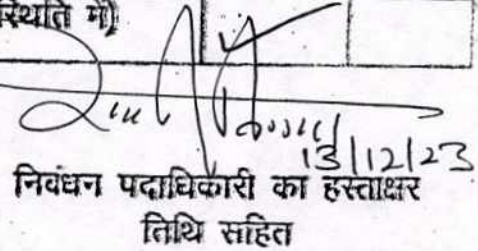 स्थिति में)
13/12/23
निवंधन पदाधिकारी का हस्ताक्षर
तिथि सहित